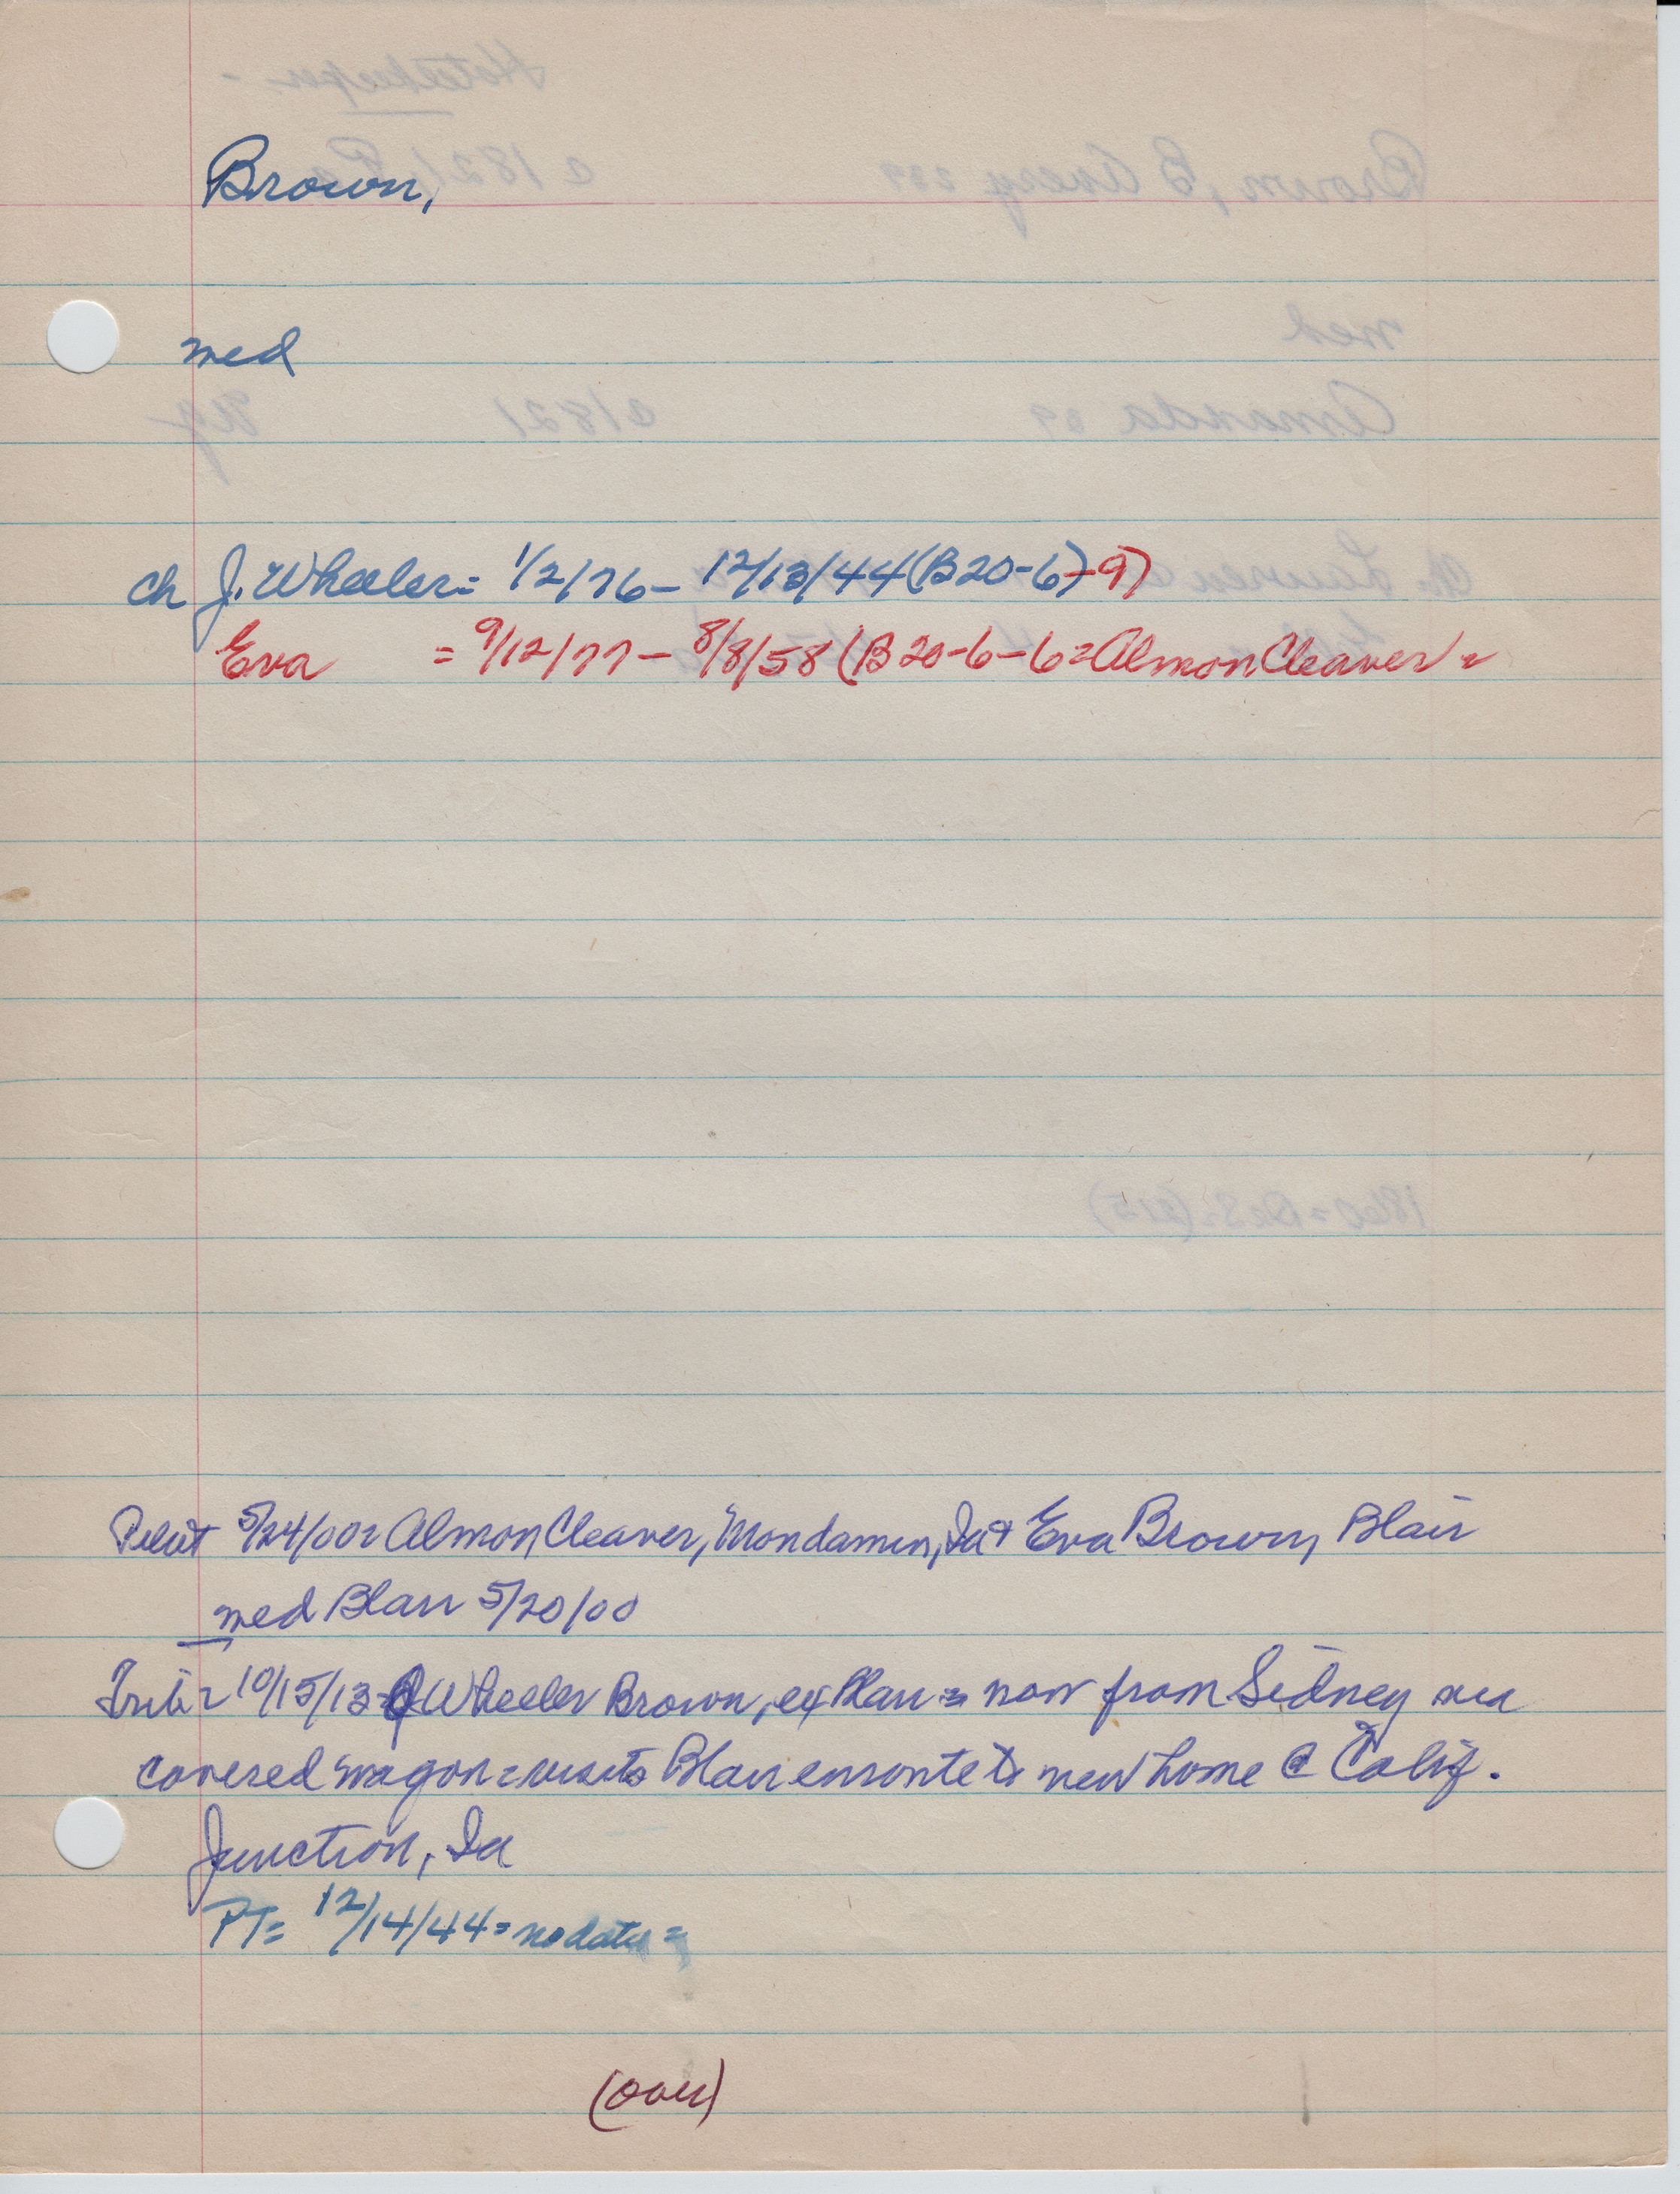 Brown,
med
ch J. Wheeler = 1/2/76 - 12/13/44 (B20-6)-9)
Eva = 9/12/77 - 8/8/58 (B20-6-6 = Almon Cleaver) =
5/24/00 = Almon Cleaver, Mondamin, Ia & Eva Brown, Blair
med Blair 5/20/00
Trib = 10/15/13 = J Wheeler Brown, ex Blair = now from Sidney via
covered wagon = visits Blair enroute to new home @ Calif.
Junction, Ia
PT = 12/14/44 = no data =
(over)